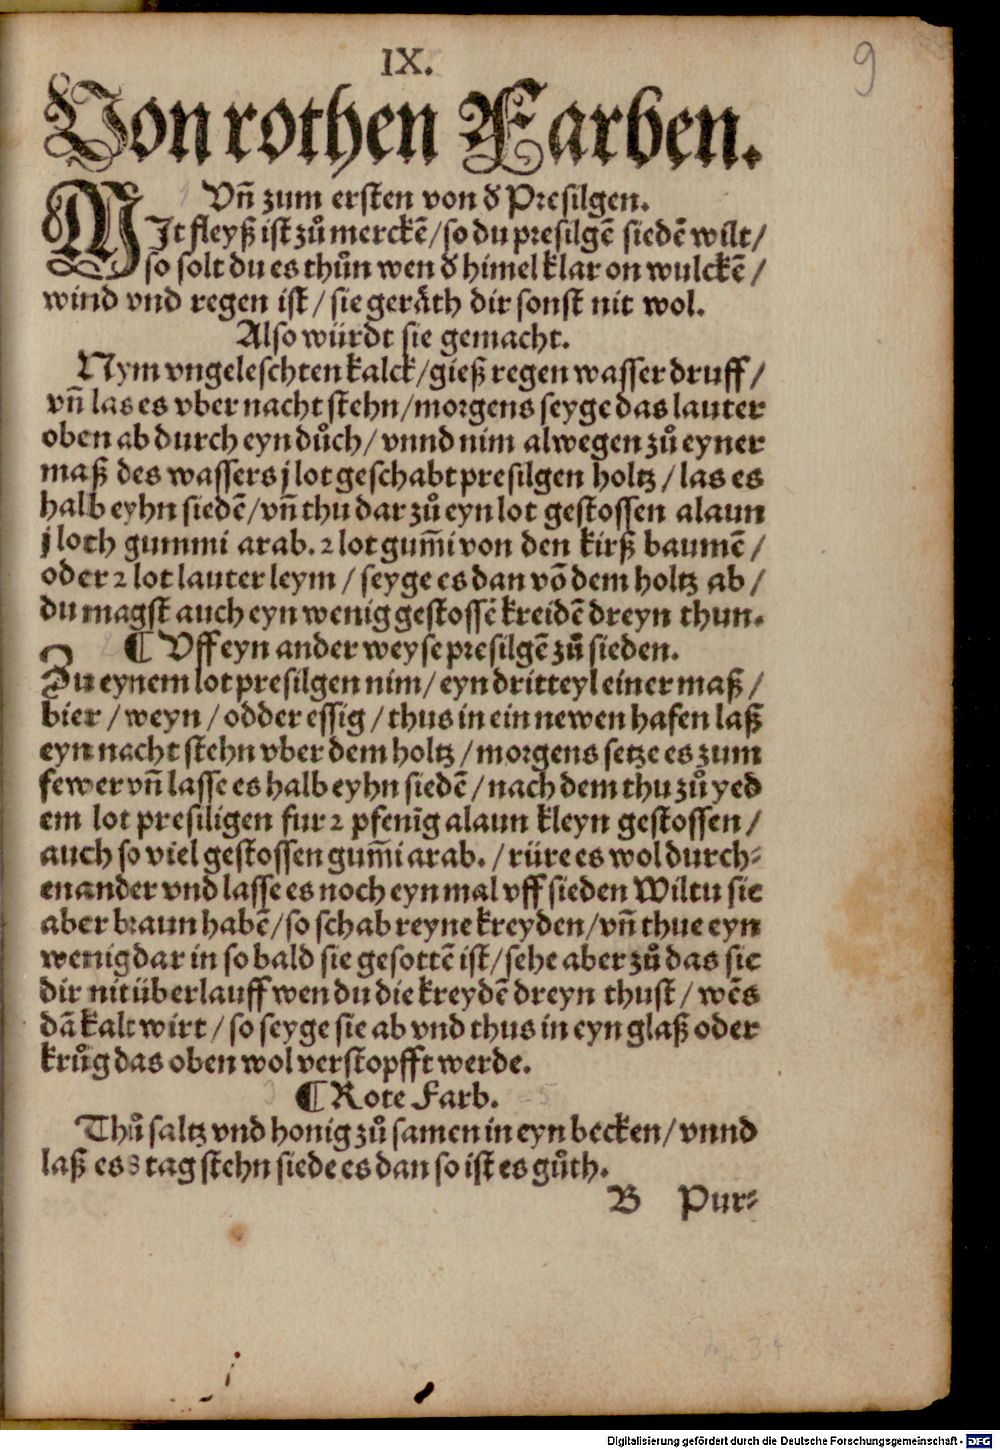 IX.
9
Von rothen Farben.
Vñ zum ersten von d̕ Presilgen.
MIt fleyß ist zů mercke͂/so du presilge͂ siede͂ wilt/
so solt du es thůn wen d̕ himel klar on wulcke͂/
wind vnd regen ist/sie geräth dir sonst nit wol.
Also würdt sie gemacht.
Nym vngeleschten kalck/gieß regen wasser druff/
vñ las es vber nacht stehn/morgens seyge das lauter
oben ab durch eyn důch/vnnd nim alwegen zů eyner
maß des wassers j lot geschabt presilgen holtz/las es
halb eyhn siede͂/vñ thu dar zů eyn lot gestossen alaun
j loth gummi arab. 2 lot gum̃i von den kirß baume͂/
oder 2 lot lauter leym/seyge es dan võ dem holtz ab/
du magst auch eyn wenig gestosse͂ kreide͂ dreyn thun.
¶ Vff eyn ander weyse presilge͂ zů sieden.
Zu eynem lot presilgen nim/eyn dritteyl einer maß/
bier/weyn/odder essig/thus in ein newen hafen laß
eyn nacht stehn vber dem holtz/morgens setze es zum
fewer vñ lasse es halb eyhn siede͂/nach dem thu zů yed
em lot presiligen fur 2 pfenig̃ alaun kleyn gestossen/
auch so viel gestossen gum̃i arab./rüre es wol durch⸗
enander vnd lasse es noch eyn mal vff sieden Wiltu sie
aber braun habe͂/so schab reyne kreyden/vñ thue eyn
wenig dar in so bald sie gesotte͂ ist/sehe aber zů das sie
dir nit überlauff wen du die kreyde͂ dreyn thust/we͂s
dã kalt wirt/so seyge sie ab vnd thus in eyn glaß oder
krůg das oben wol verstopfft werde.
¶ Rote Farb.
Thů saltz vnd honig zů samen in eyn becken/vnnd
laß es 8 tag stehn siede es dan so ist es gůth.
B Pur⸗
Digitalisierung gefördert durch die Deutsche Forschungsgemeinschaft - DFG